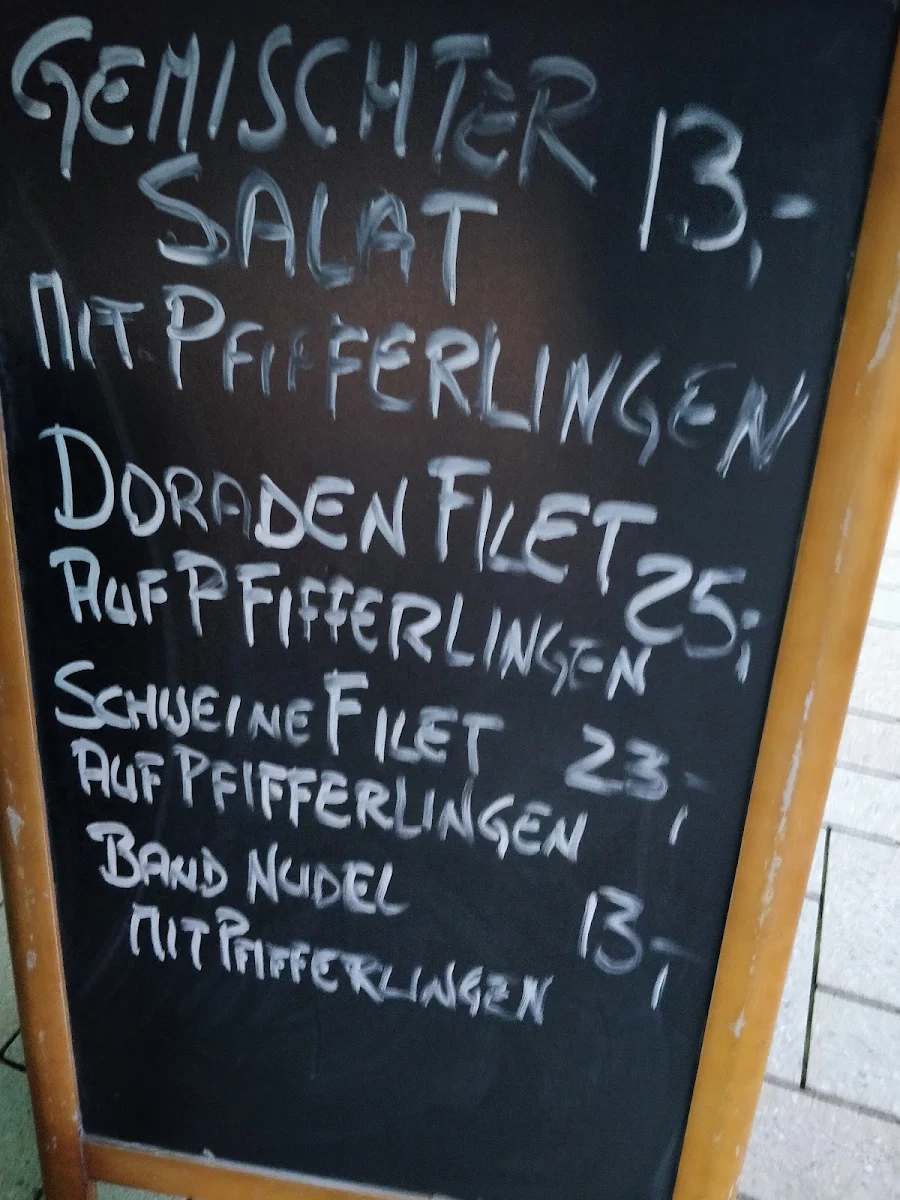 GEMISCHTER
SALAT 13,-
MIT PFIFFERLINGEN
DORADEN FILET
AUF PFIFFERLINGEN 25,-
SCHWEINE FILET 23,-
AUF PFIFFERLINGEN
BAND NUDEL
MIT PFIFFERLINGEN 13,-